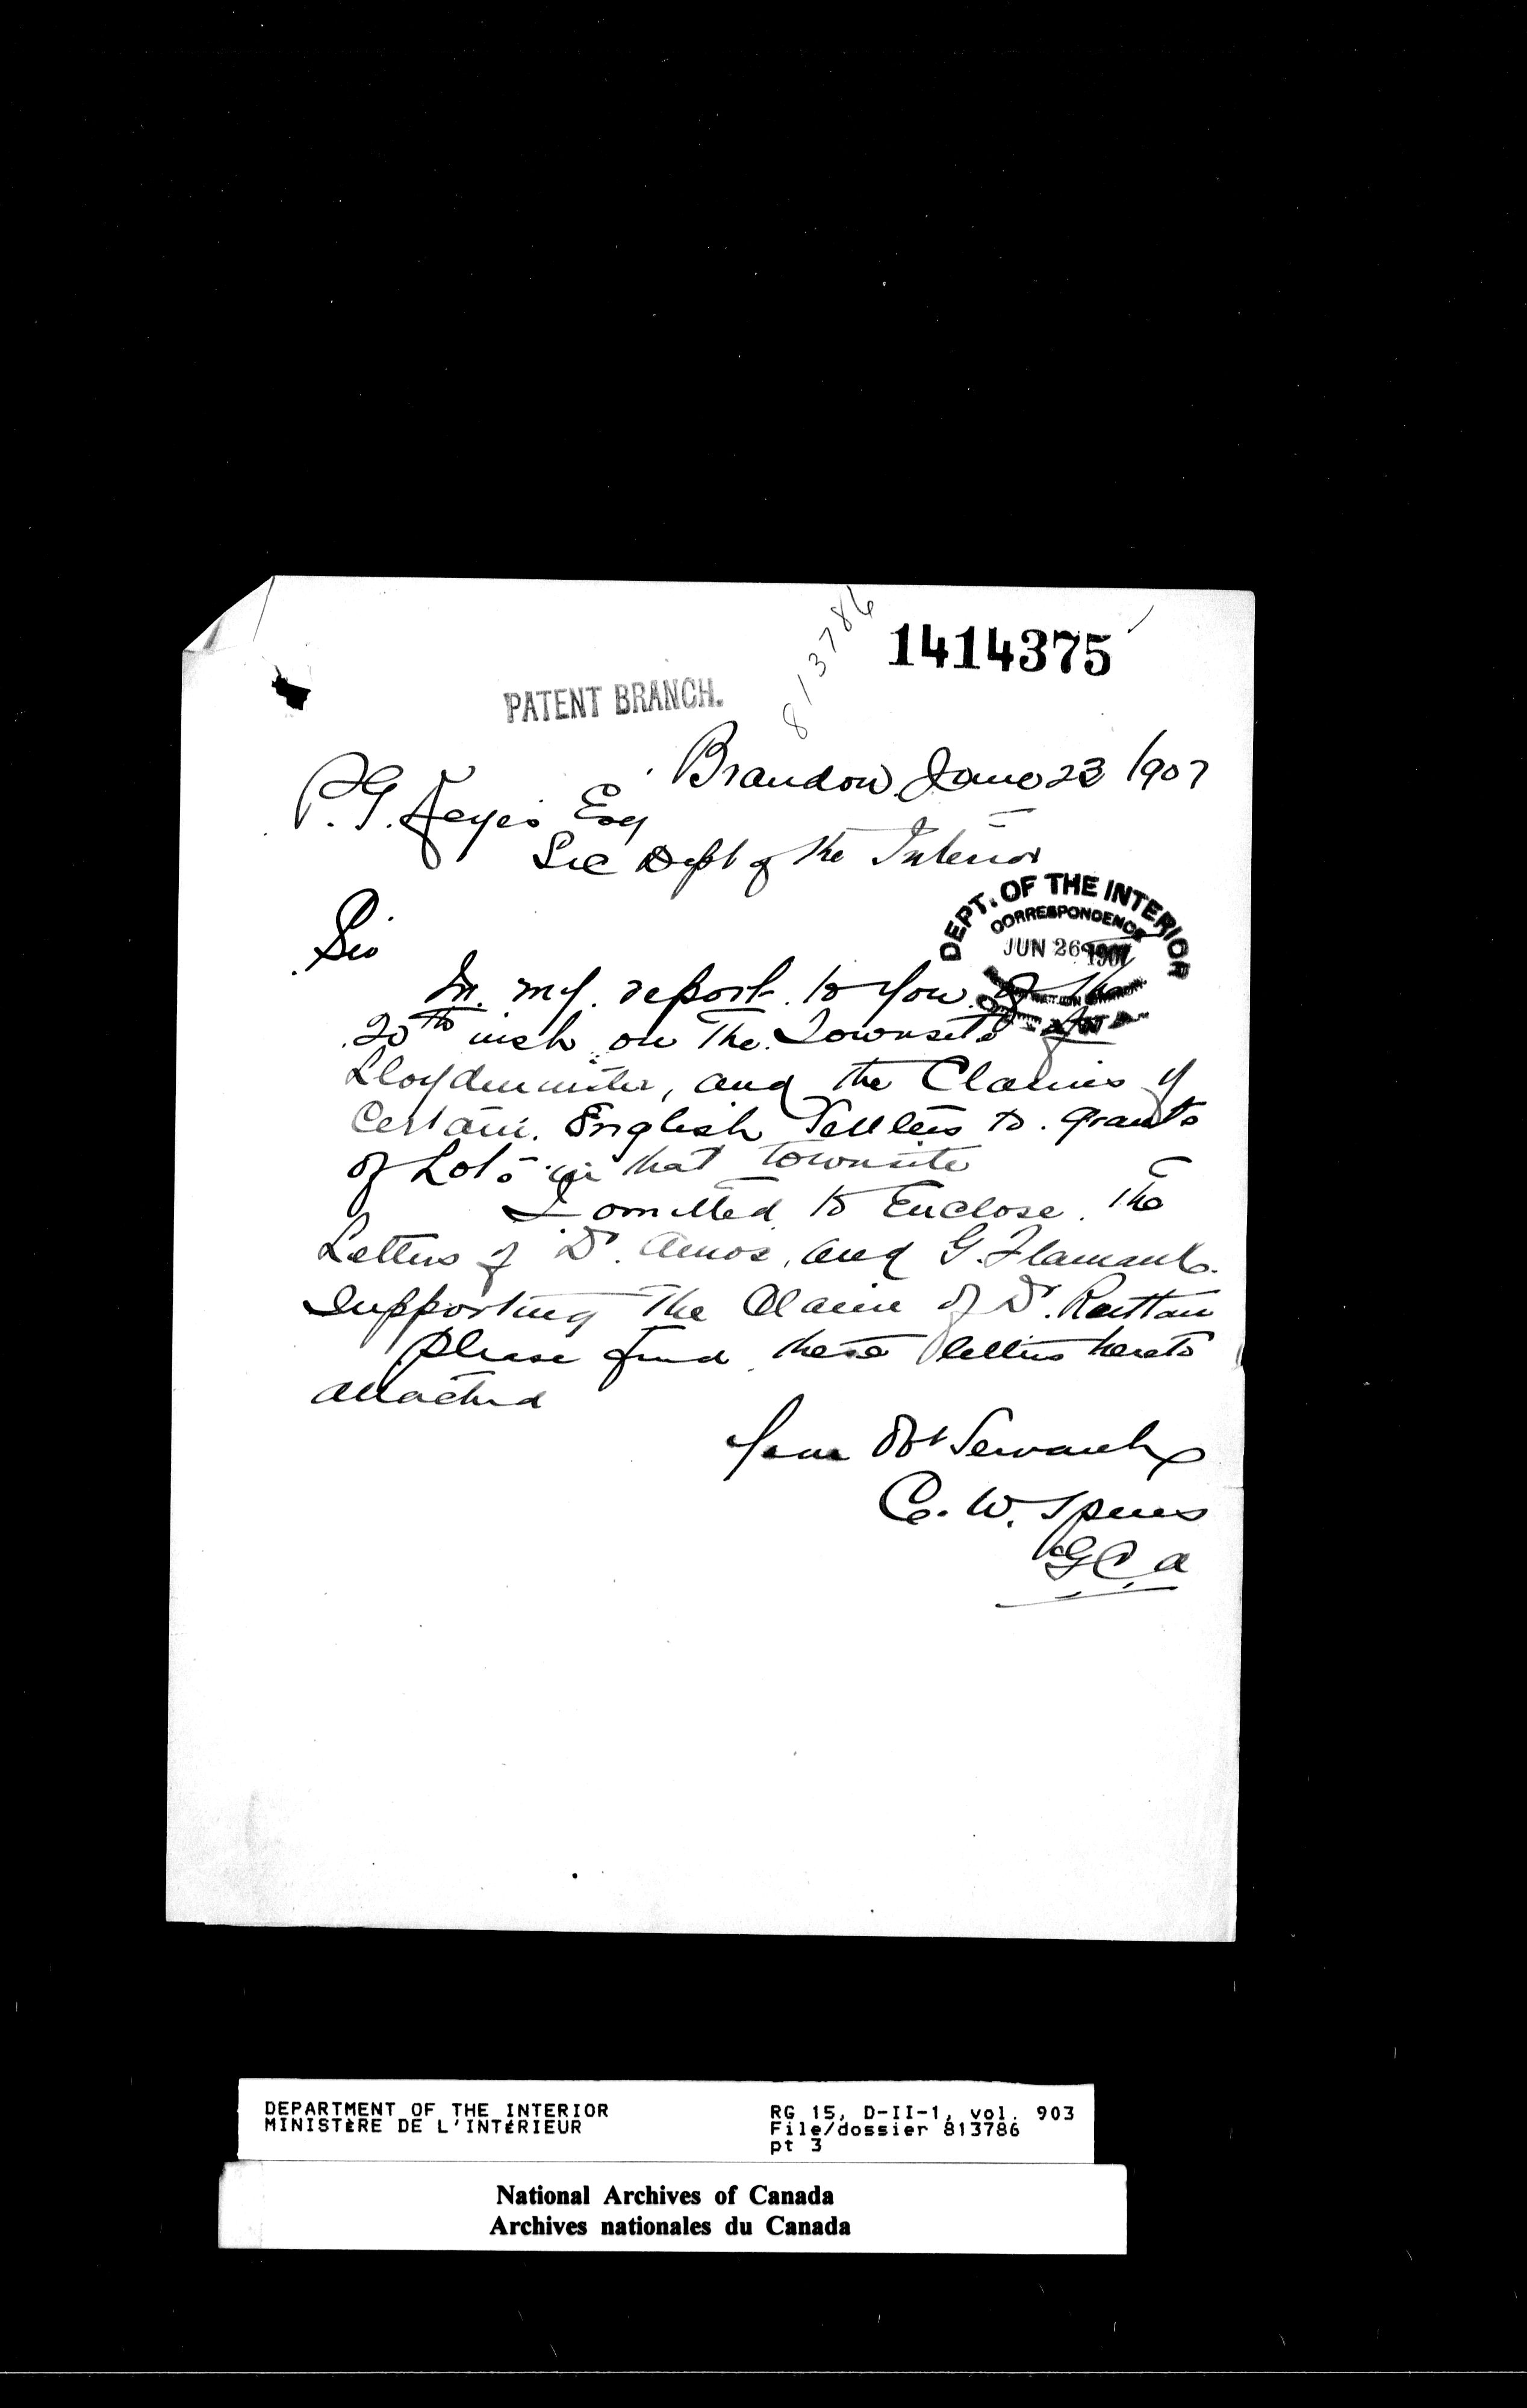 813786
1414375
PATENT BRANCH.
Brandon June 23 1907
P. G. Keyes Esq
Sec Dept of the Interior
DEPT. OF THE INTERIOR
CORRESPONDENCE
JUN 26 1907
Sir
In my report to you of the
20th inst on the Townsite of
Lloydminster, and the Claims of
Certain English Settlers to grants
of Lots in that townsite
I omitted to Enclose the
Letters of Dr. Amos, and G. Flamank
Supporting the Claim of Dr. Rattan
Please find these letters hereto
attached
Your Obt Servant
C. W. Speers
G C A
DEPARTMENT OF THE INTERIOR
MINISTÈRE DE L'INTÉRIEUR
RG 15, D-II-1, vol. 903
File/dossier 813786
pt 3
National Archives of Canada
Archives nationales du Canada